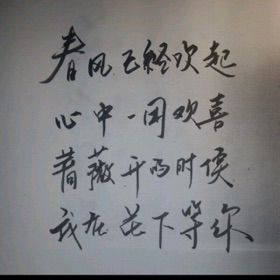 春风已经吹起
心中一团欢喜
蔷薇开的时候
我在花下等你